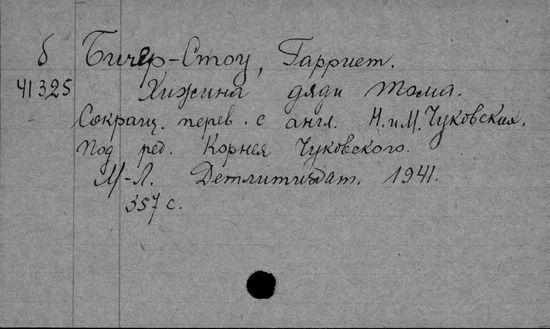 б Бичер-Стоу, Гарриет.
41325 Хижина дяди Тома.
Сокращ. перев. с англ. Н. и М. Чуковских.
Под ред. Корнея Чуковского.
М-Л. Детлитиздат. 1941.
357 с.